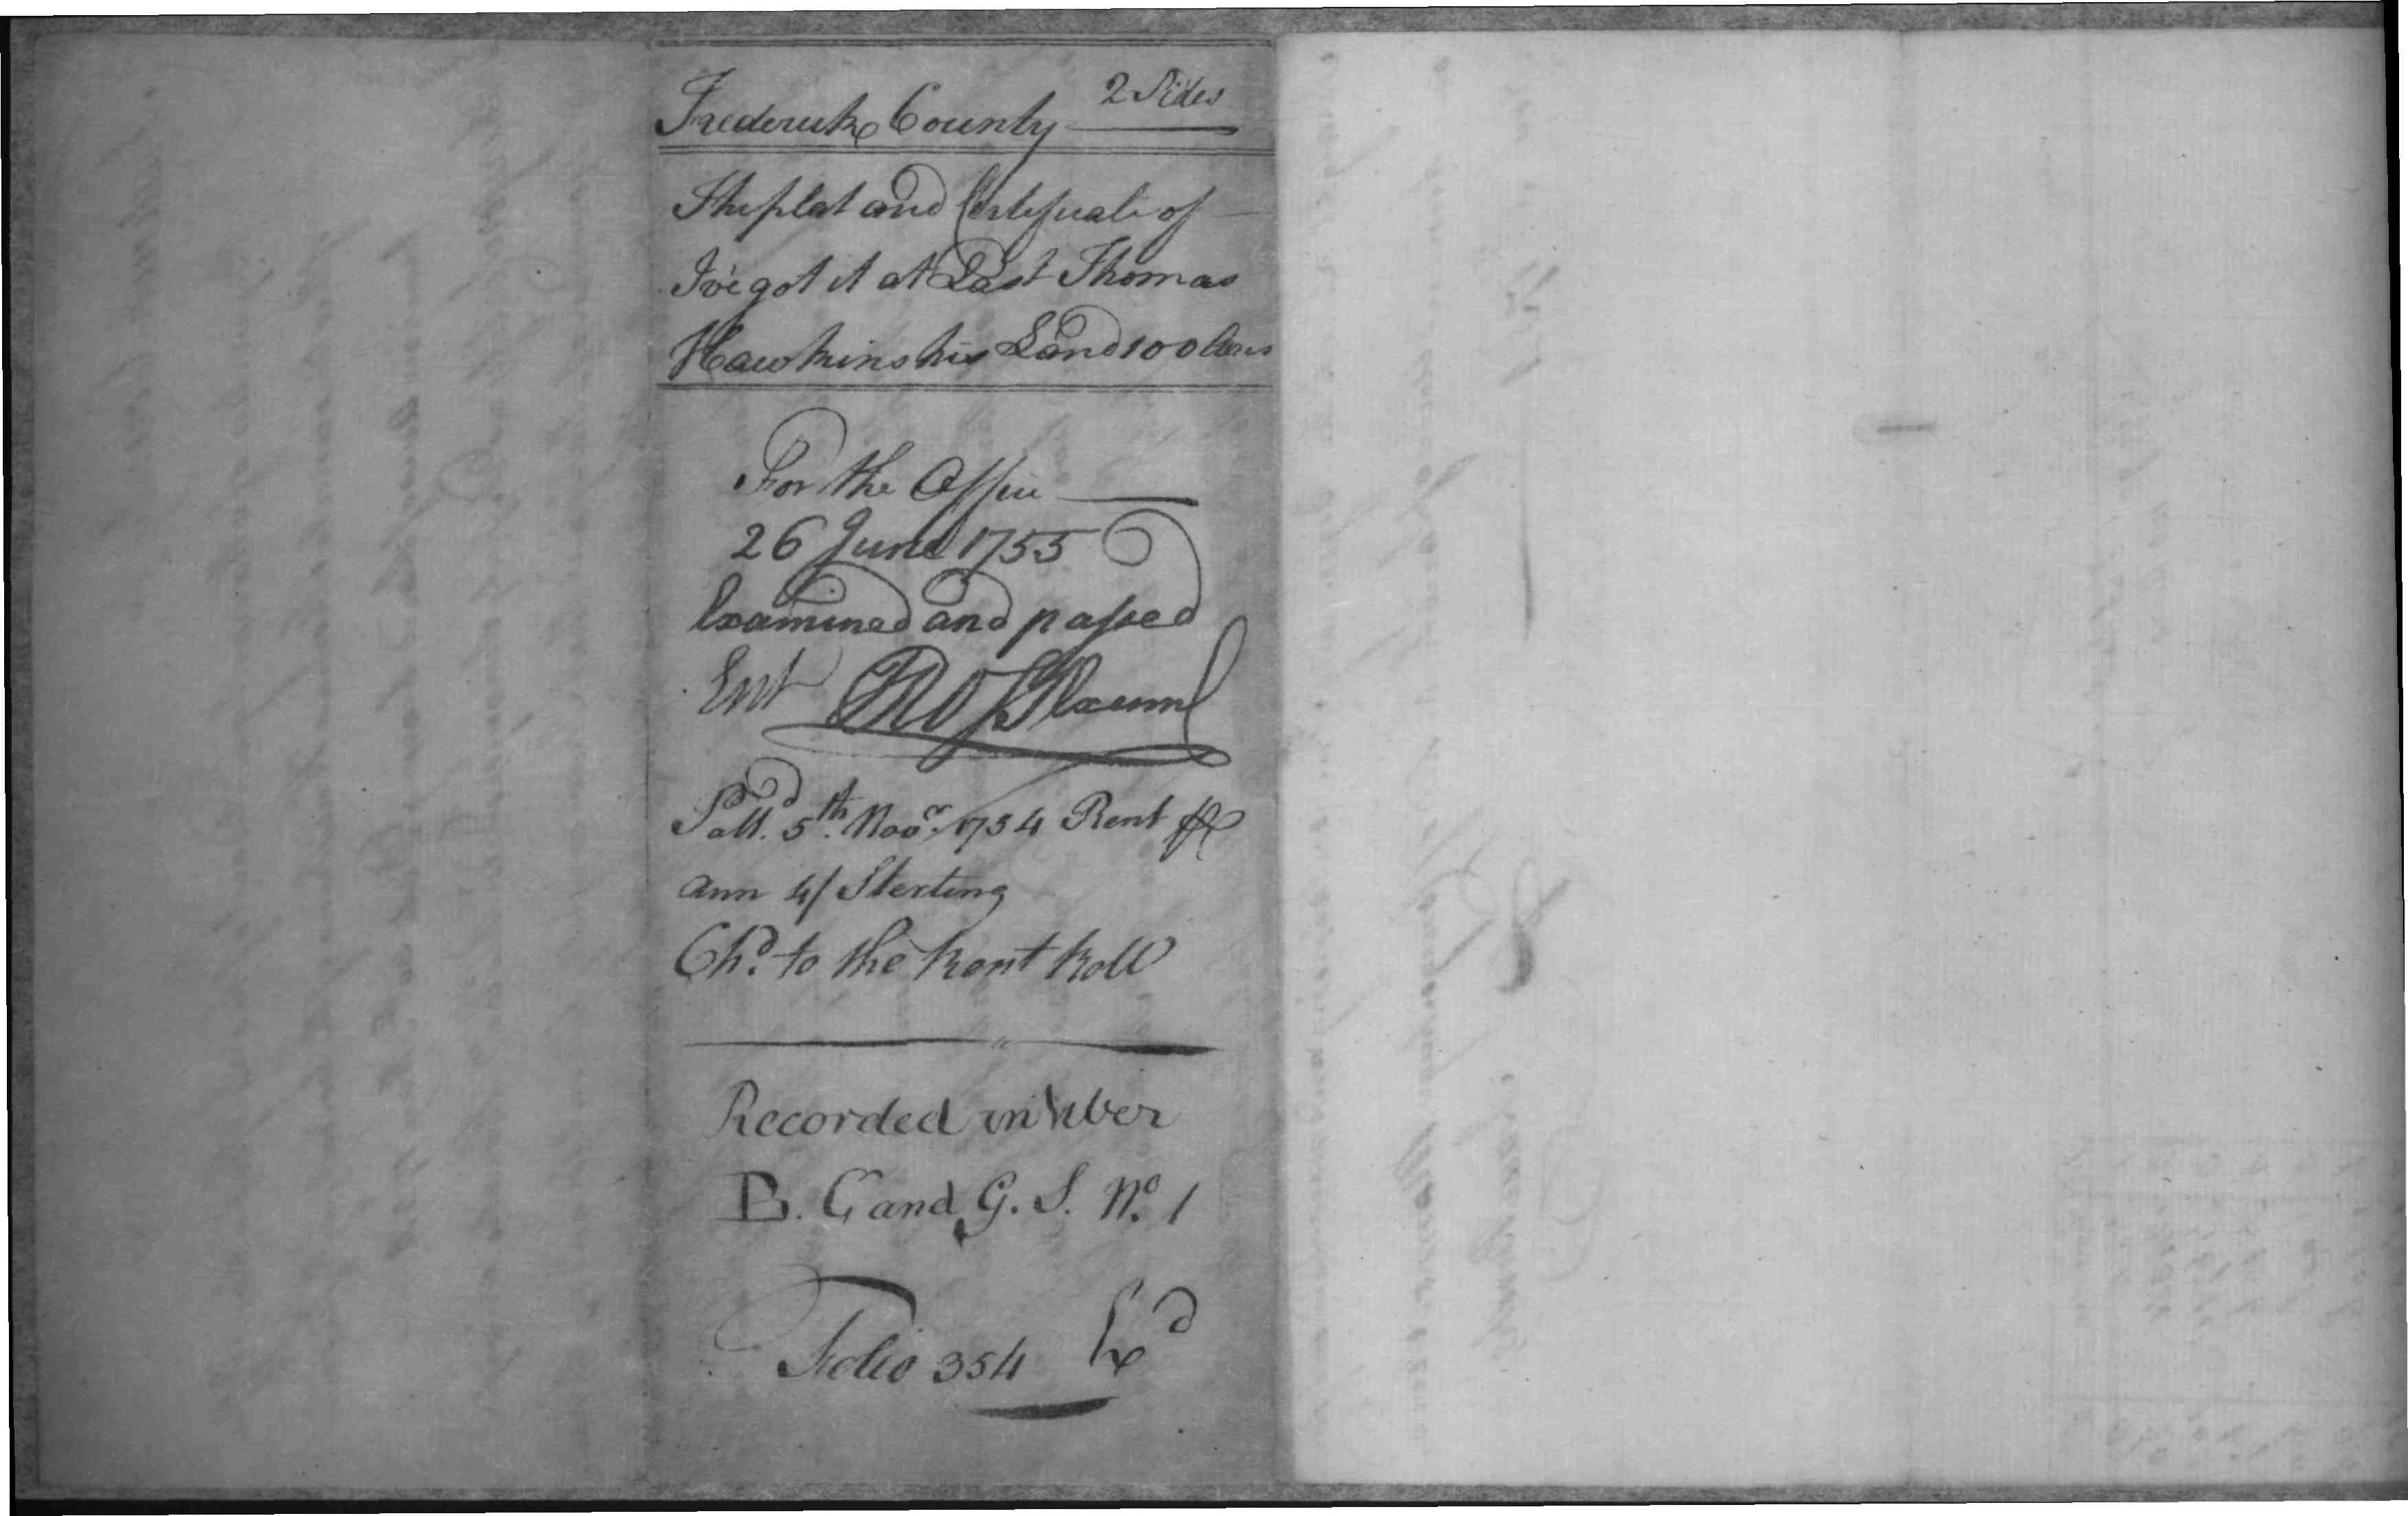 Frederick County 2 Sides
The plat and Certificate of
I've got it at Last Thomas
Hawkins his Land 100 Acres
For the Office
26 June 1755
Examined and passed
Ent
Patd. 5th. Novr. 1754 Rent
Ann 4/ Sterling
Chd. to the Rent Roll
Recorded in Liber
B. C and G. S. No. 1
Folio 354 Exd